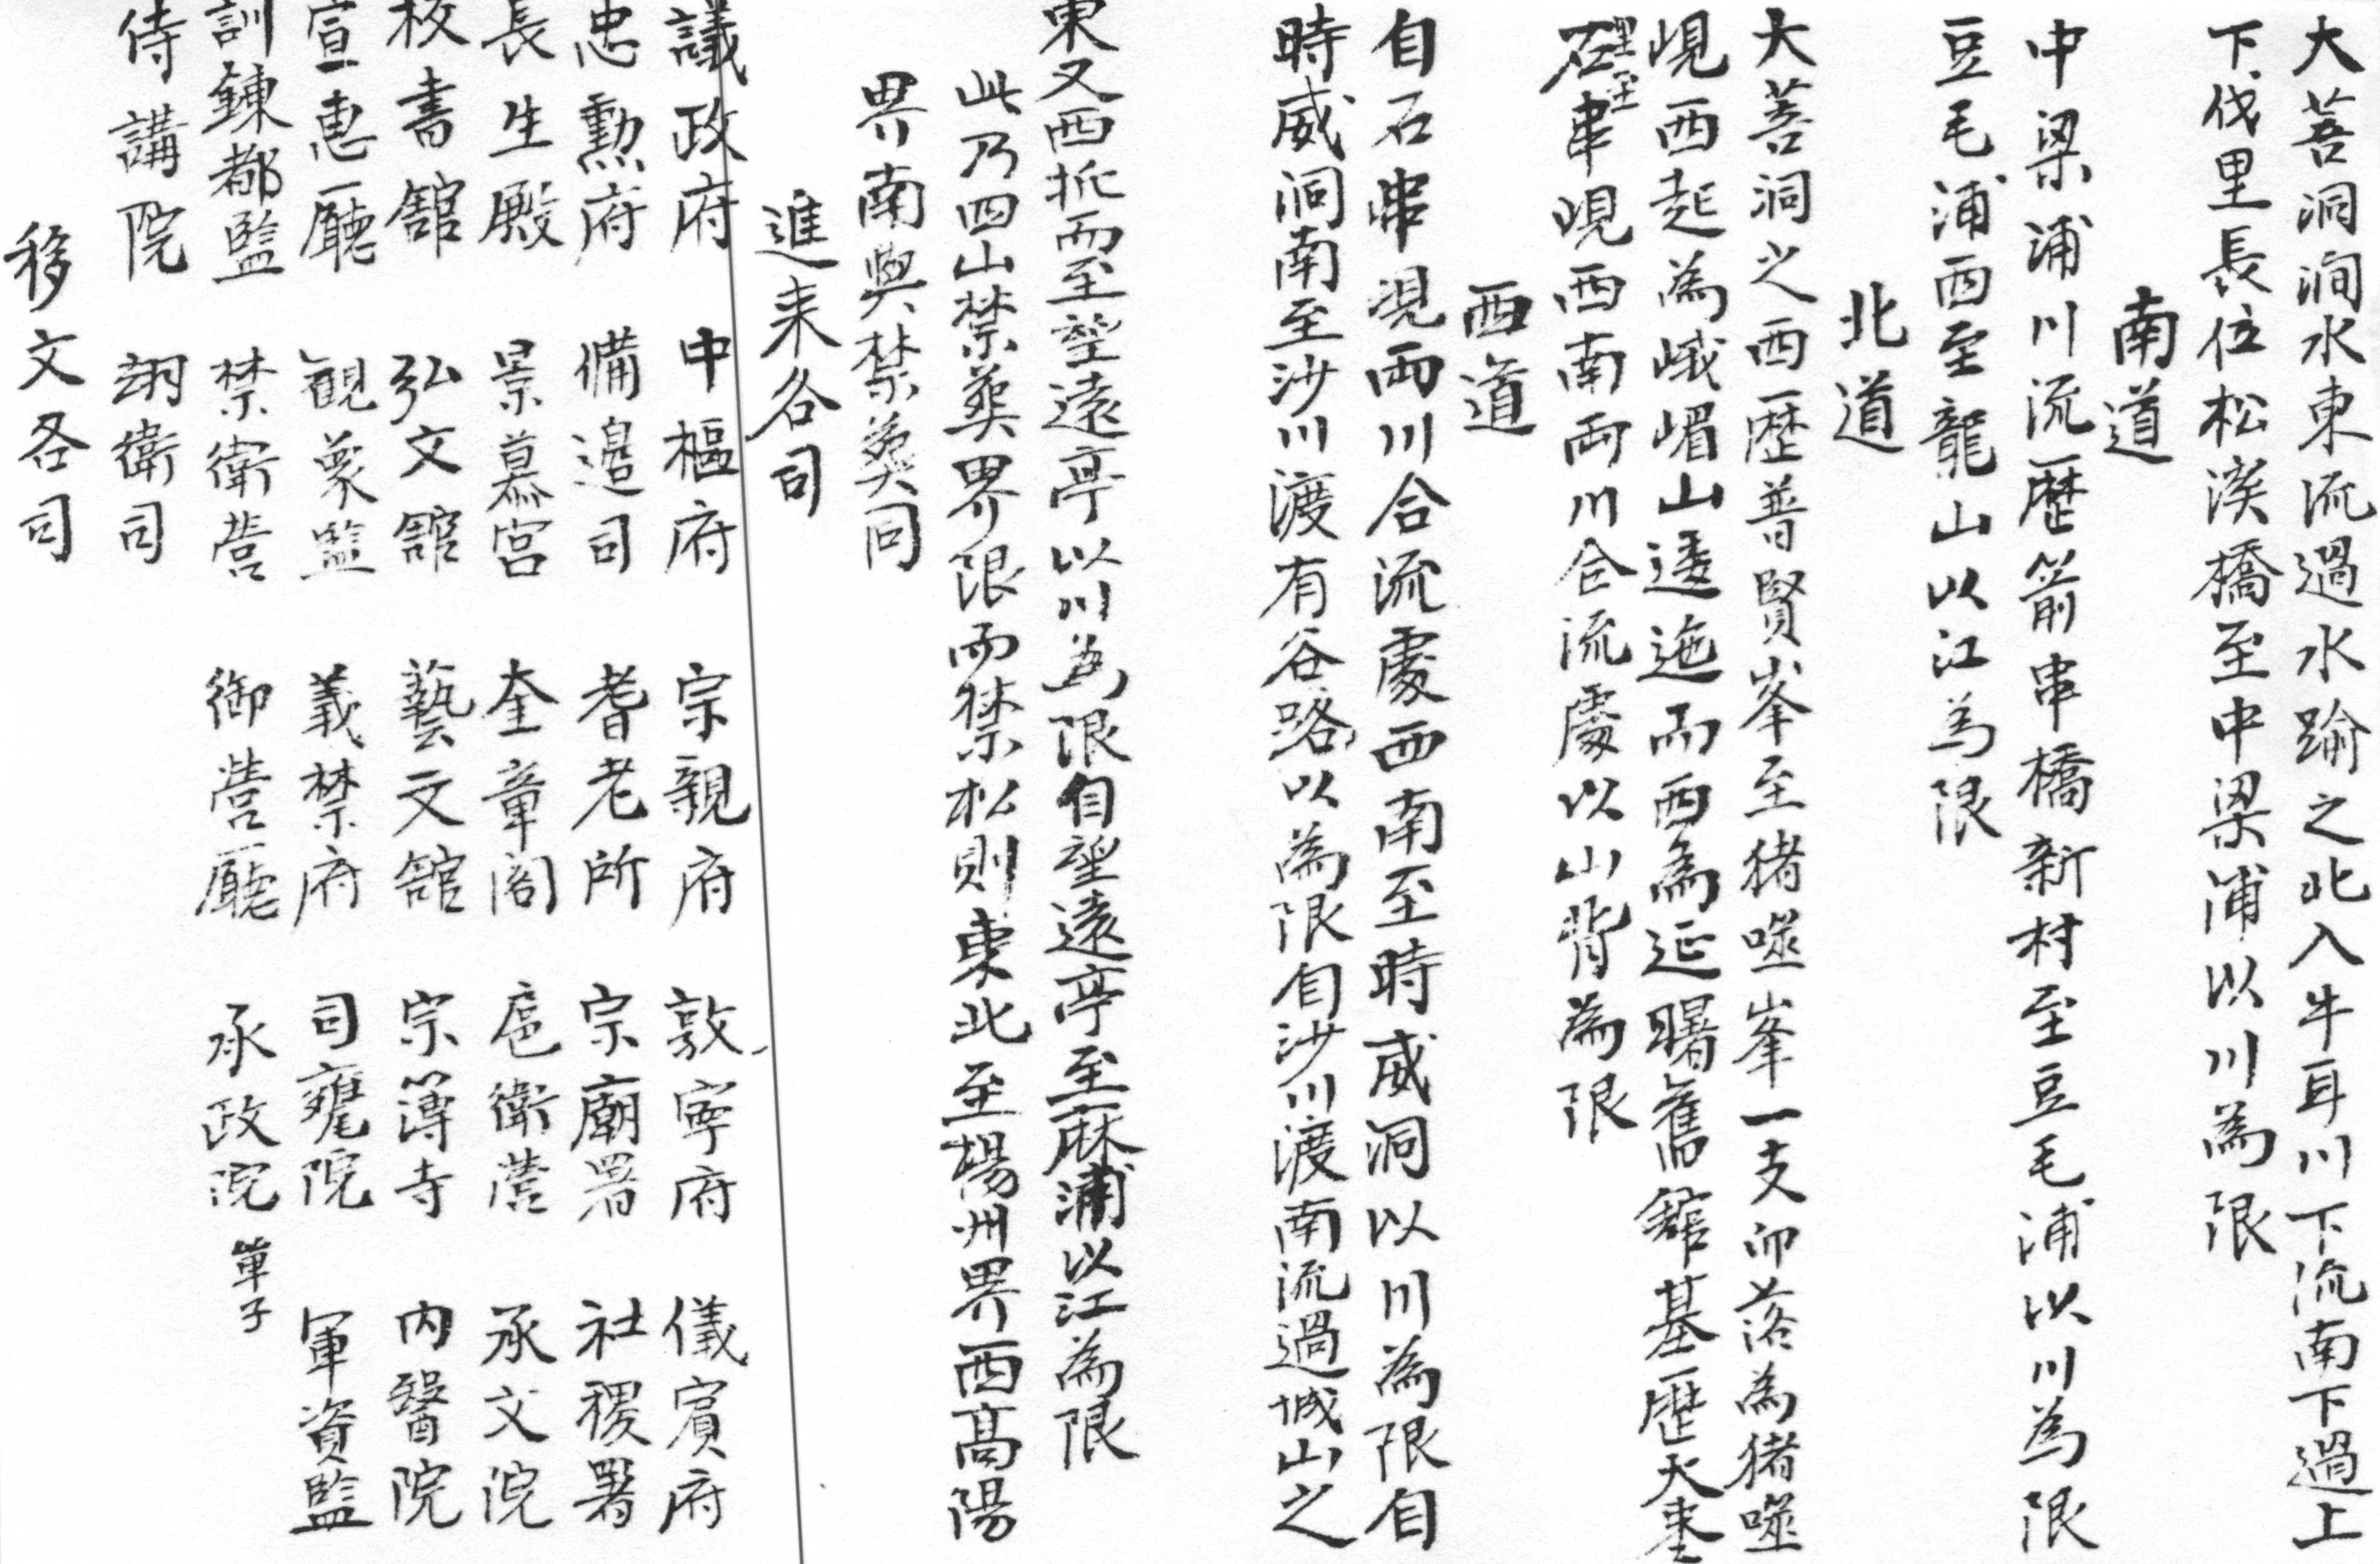 大菩洞澗水東流過水踰之北入牛耳川下流南下過上
下伐里長位松溪橋至中梁浦以川為限
南道
中梁浦川流歷箭串橋新村至豆毛浦以川為限
豆毛浦西至龍山以江為限
北道
大菩洞之西歷普賢峯至猪噬峯一支卯落為猪噬
峴西起為峨嵋山逶迤而西為延曙舊館基歷大棗
里至石串峴西南両川合流處以山背為限
西道
自石串峴両川合流處西南至時威洞以川為限自
時威洞南至沙川渡有谷路以為限自沙川渡南流過城山之
東又西折而至望遠亭以川為限自望遠亭至麻浦以江為限
此乃四山禁葬界限而禁松則東北至楊州界西高陽
界南與禁葬同
進来各司
議政府 中樞府 宗親府 敦寧府 儀賓府
忠勳府 備邊司 耆老所 宗廟署 社稷署
長生殿 景慕宮 奎章閣 扈衛營 承文院
校書館 弘文館 藝文館 宗簿寺 內醫院
宣惠廳 觀象監 義禁府 司饔院 軍資監
訓鍊都監 禁衛營 御營廳 承政院 單子
侍講院 翊衛司
移文各司